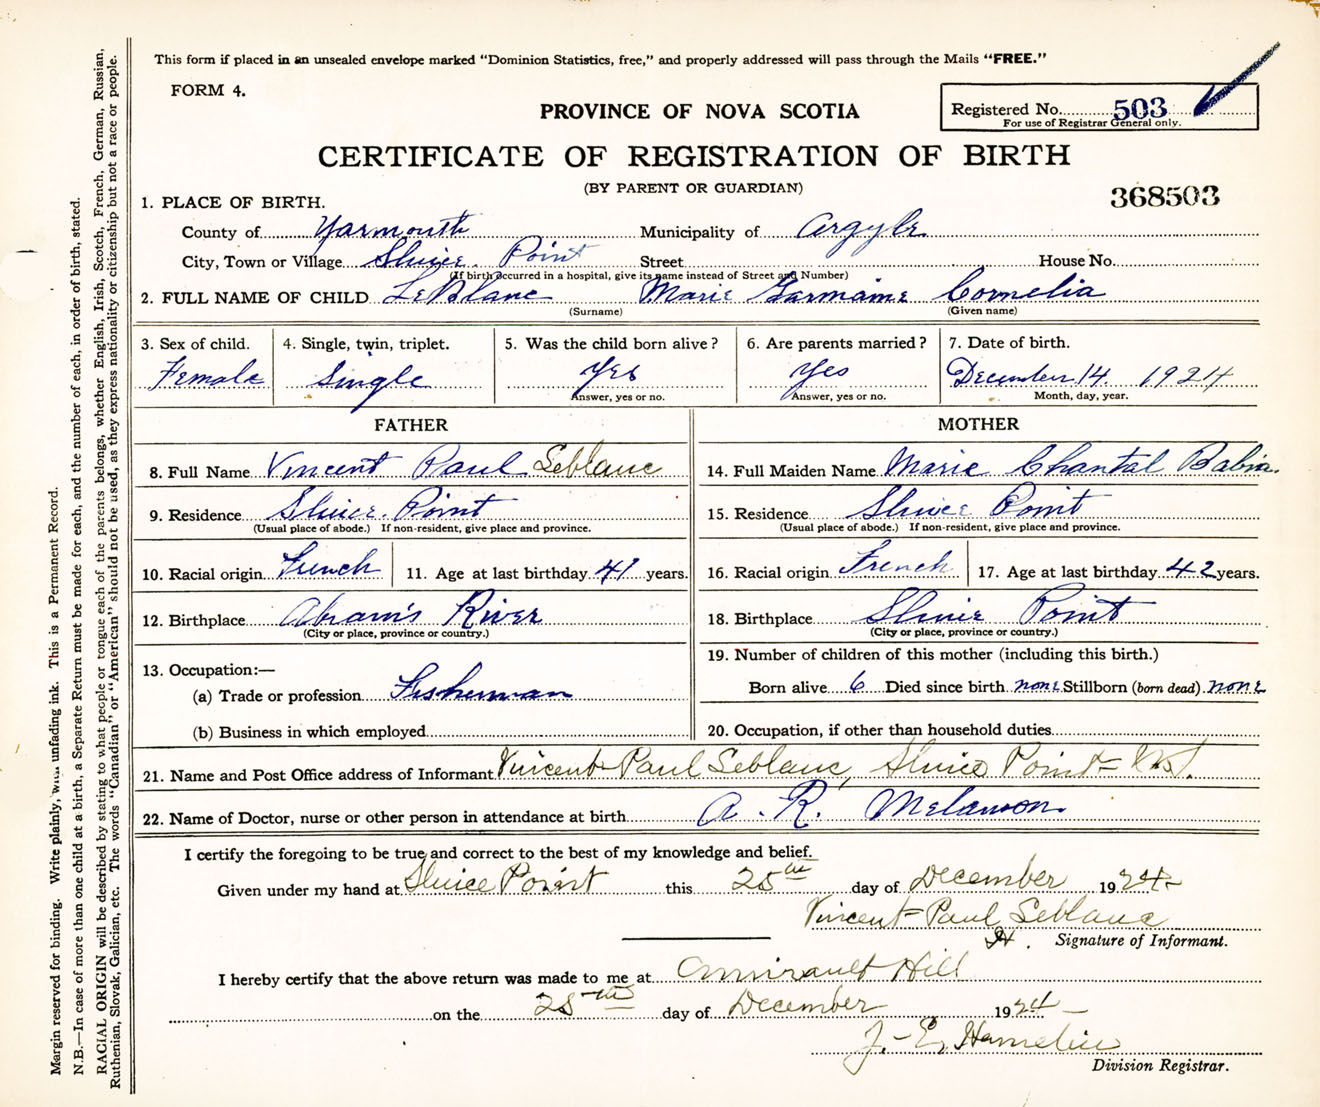 This form if placed in an unsealed envelope marked "Dominion Statistics, free," and properly addressed will pass through the Mails "FREE."
FORM 4.
PROVINCE OF NOVA SCOTIA
Registered No. 503
For use of Registrar General only.
CERTIFICATE OF REGISTRATION OF BIRTH
(BY PARENT OR GUARDIAN)
368503
1. PLACE OF BIRTH.
County of Yarmouth Municipality of Argyle
City, Town or Village Sluice Point Street House No.
(If birth occurred in a hospital, give its name instead of Street and Number)
2. FULL NAME OF CHILD LeBlanc Marie Garmaine Cornelia
(Surname) (Given name)
3. Sex of child. 4. Single, twin, triplet. 5. Was the child born alive? 6. Are parents married? 7. Date of birth.
Female Single Yes Yes December 14 1924
Answer, yes or no. Answer, yes or no. Month, day, year.
FATHER MOTHER
8. Full Name Vincent Paul Leblanc 14. Full Maiden Name Marie Chantal Babin.
9. Residence Sluice Point 15. Residence Sluice Point
(Usual place of abode.) If non-resident, give place and province. (Usual place of abode.) If non-resident, give place and province.
10. Racial origin French 11. Age at last birthday 41 years. 16. Racial origin French 17. Age at last birthday 42 years.
12. Birthplace Abram's River 18. Birthplace Sluice Point
(City or place, province or country.) (City or place, province or country.)
13. Occupation:— 19. Number of children of this mother (including this birth.)
(a) Trade or profession Fisherman Born alive 6 Died since birth none Stillborn (born dead) none
(b) Business in which employed 20. Occupation, if other than household duties
21. Name and Post Office address of Informant Vincent Paul Leblanc, Sluice Point
22. Name of Doctor, nurse or other person in attendance at birth A. R. Melanson
I certify the foregoing to be true and correct to the best of my knowledge and belief.
Given under my hand at Sluice Point this 25th day of December 1924
Vincent Paul Leblanc
Signature of Informant.
I hereby certify that the above return was made to me at Amirault Hill
on the 25th day of December 1924
J. E. Hamelin
Division Registrar.
Margin reserved for binding. Write plainly, with unfading ink. This is a Permanent Record.
N.B.—In case of more than one child at a birth, a Separate Return must be made for each, and the number of each, in order of birth, stated.
RACIAL ORIGIN will be described by stating to what people or tongue each of the parents belongs, whether English, Irish, Scotch, French, German, Russian,
Ruthenian, Slovak, Galician, etc. The words "Canadian" or "American" should not be used, as they express nationality or citizenship but not a race or people.